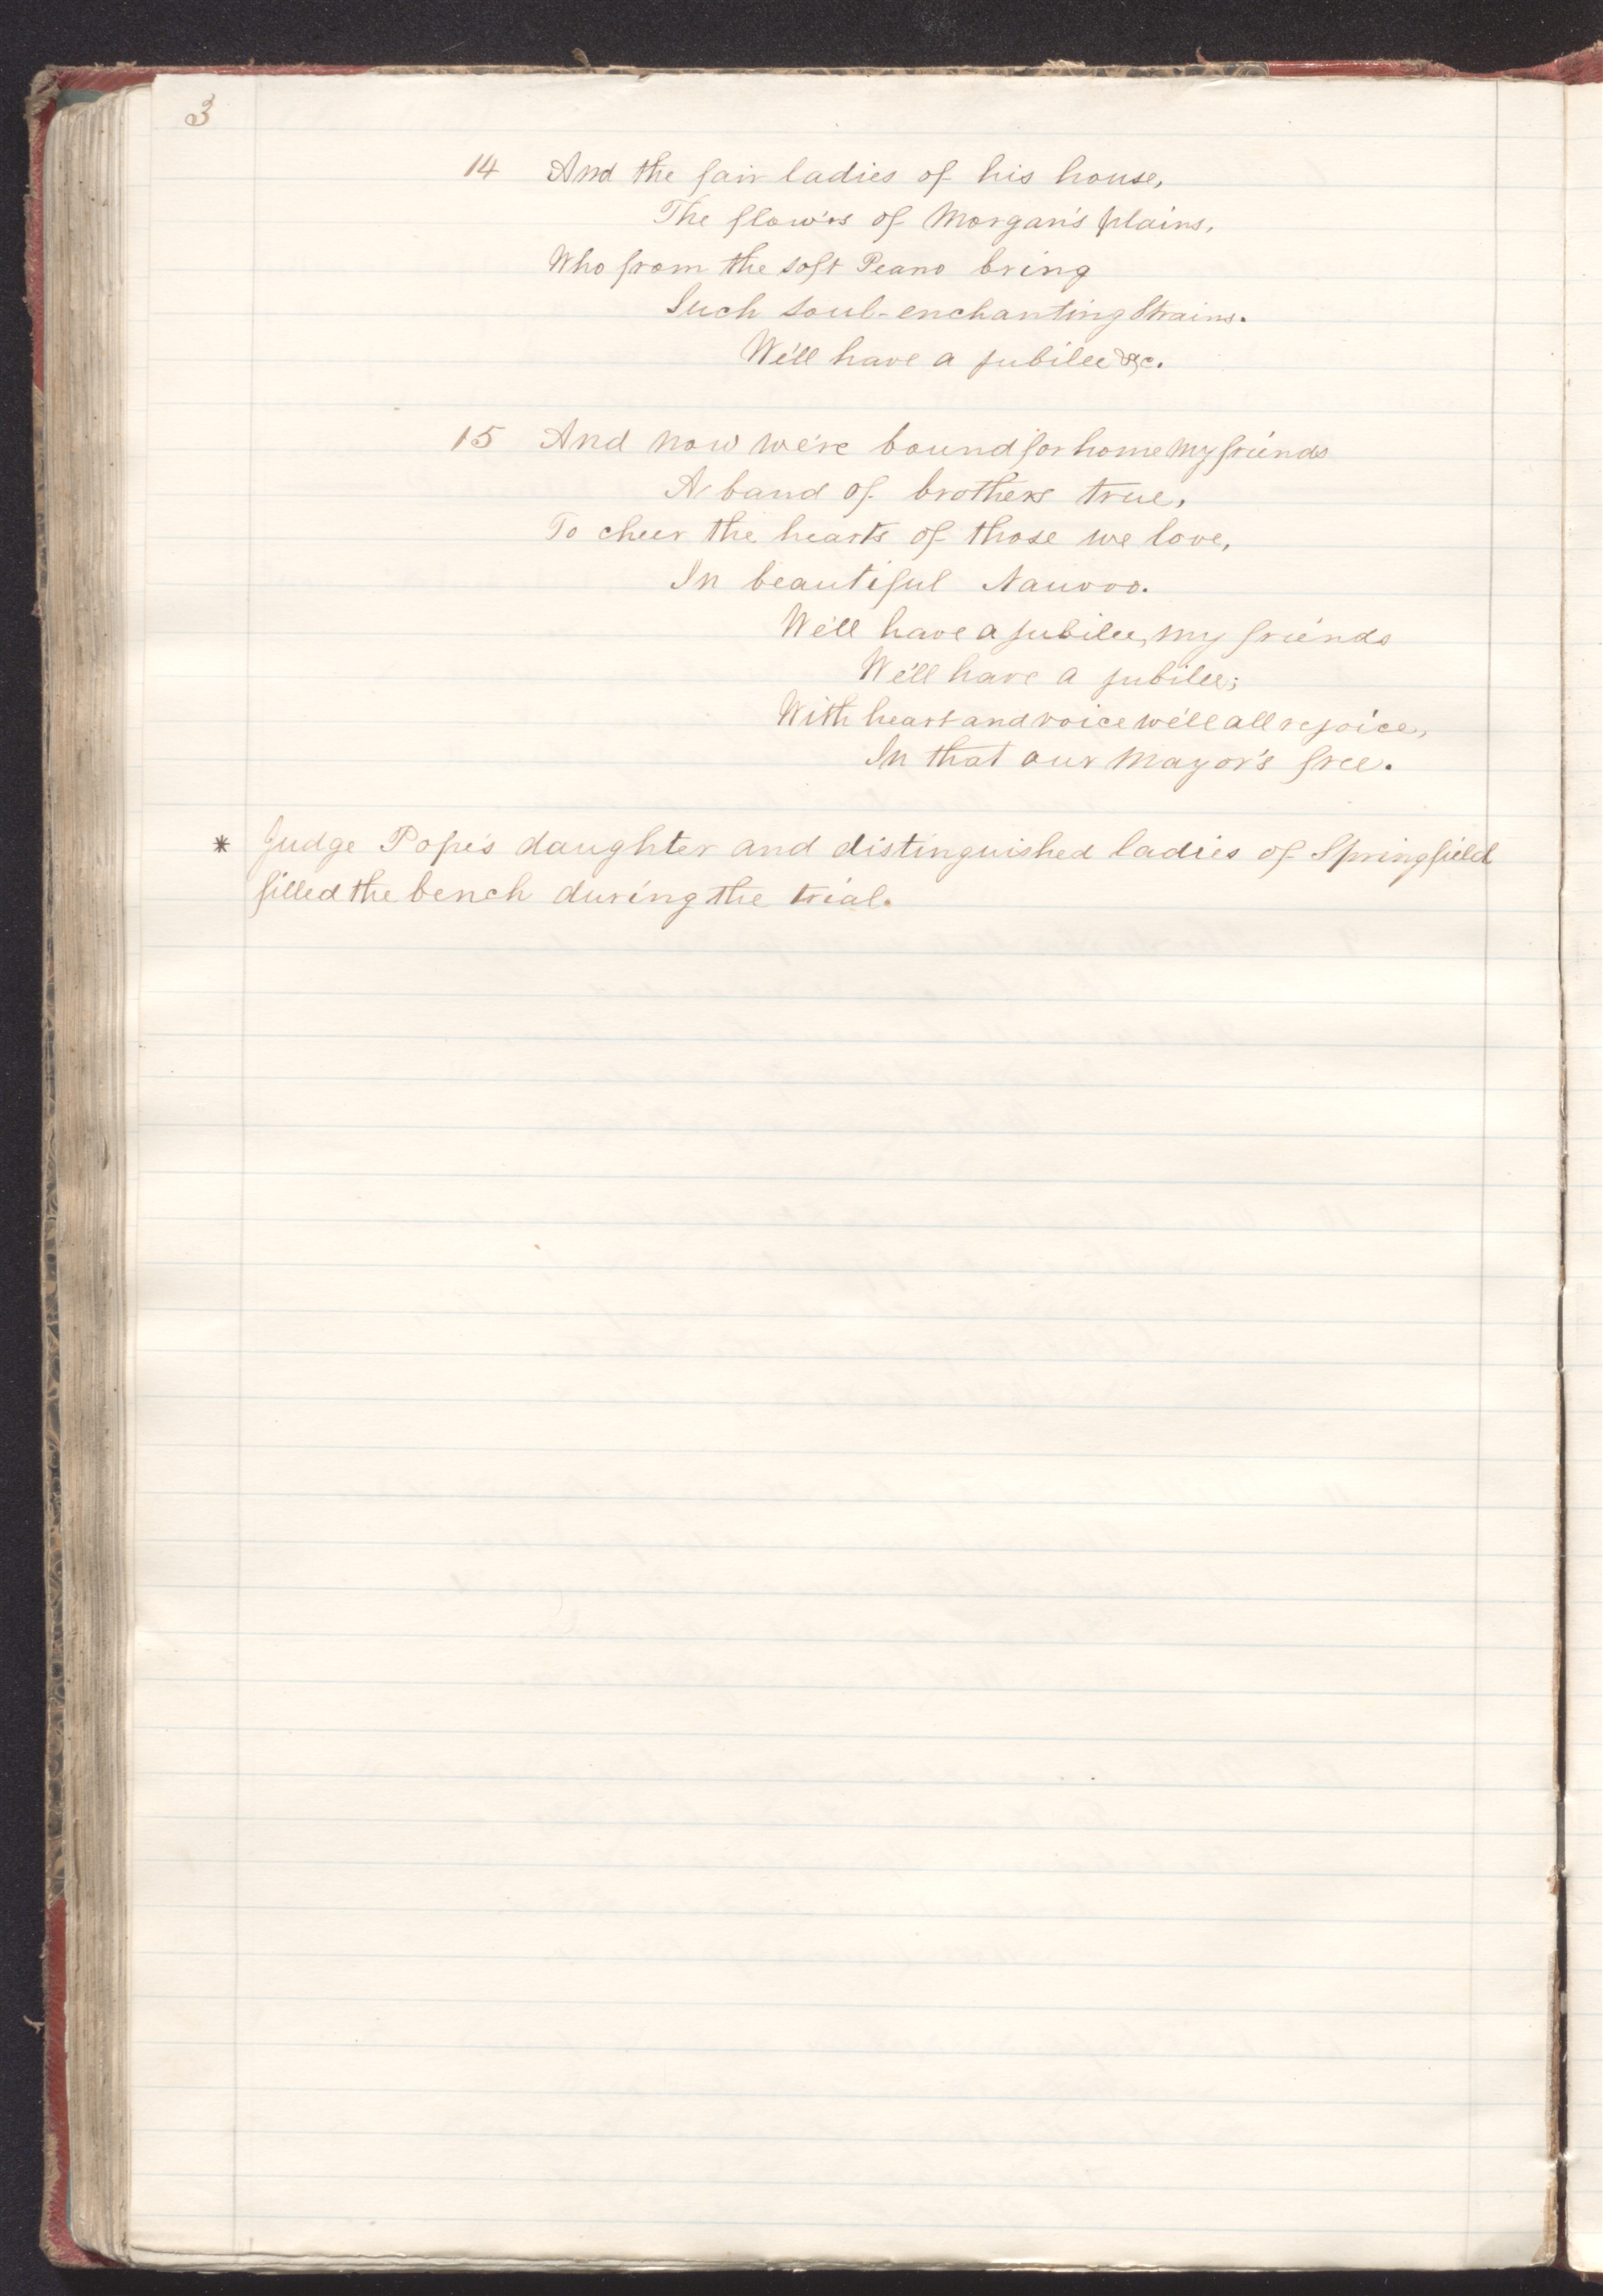 3
14 And the fair ladies of his house,
The flow'rs of Morgan's plains,
Who from the soft Peano bring
Such soul-enchanting strains.
We'll have a jubilee &c.
15 And now we're bound for home my friends
A band of brothers true,
To cheer the hearts of those we love,
In beautiful Nauvoo.
We'll have a jubilee, my friends
We'll have a jubilee;
With heart and voice we'll all rejoice,
In that our Mayor's free.
* Judge Pope's daughter and distinguished ladies of Springfield
filled the bench during the trial.